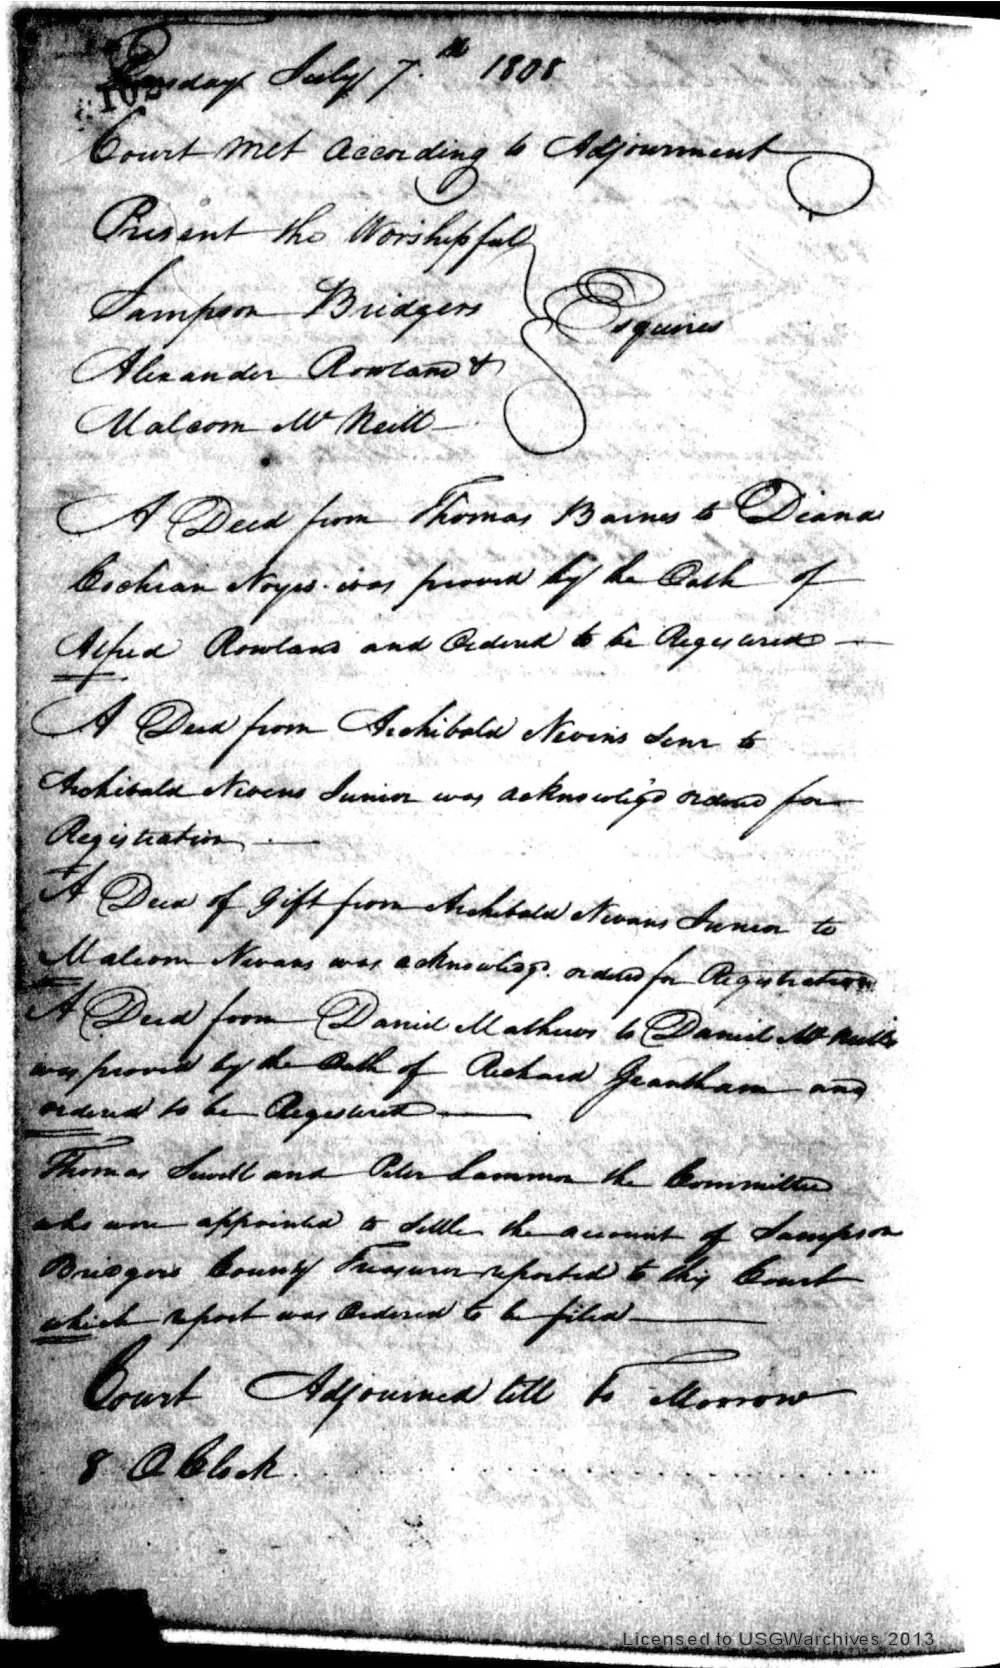 Tuesday July 7.th 1808
Court met according to Adjournment
Present the Worshipful
Sampson Bridgers
Esquires
Alexander Rowland &
Malcom Mc Neill
A Deed from Thomas Barnes to Diana
Cochran Noyes was proved by the Oath of
Alfred Rowland and Ordered to be Registered
A Deed from Archibald Nevins Senr to
Archibald Nevens Junior was acknowlig'd ordered for
Registration
A Deed of Gift from Archibald Nevans Junior to
Malcom Nevans was acknowligd. ordered for Registration
A Deed from Daniel Mathews to Daniel Mc Neill
was proved by the Oath of Richard Grantham and
ordered to be Registered
Thomas Sewell and Peter Lammon the Committee
who were appointed to Settle the account of Sampson
Bridgers County Treasurer reported to this Court
which report was Ordered to be filed
Court Adjourned till to Morrow
8 O Clock
Licensed to USGWarchives 2013